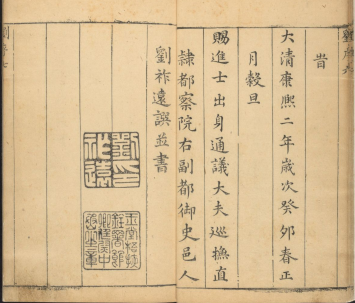 劉序六
旹
大清康熙二年歲次癸卯春正
月穀旦
賜進士出身通議大夫巡撫直
隸都察院右副都御史邑人
劉祚遠譔並書
劉印祚遠
劉序七